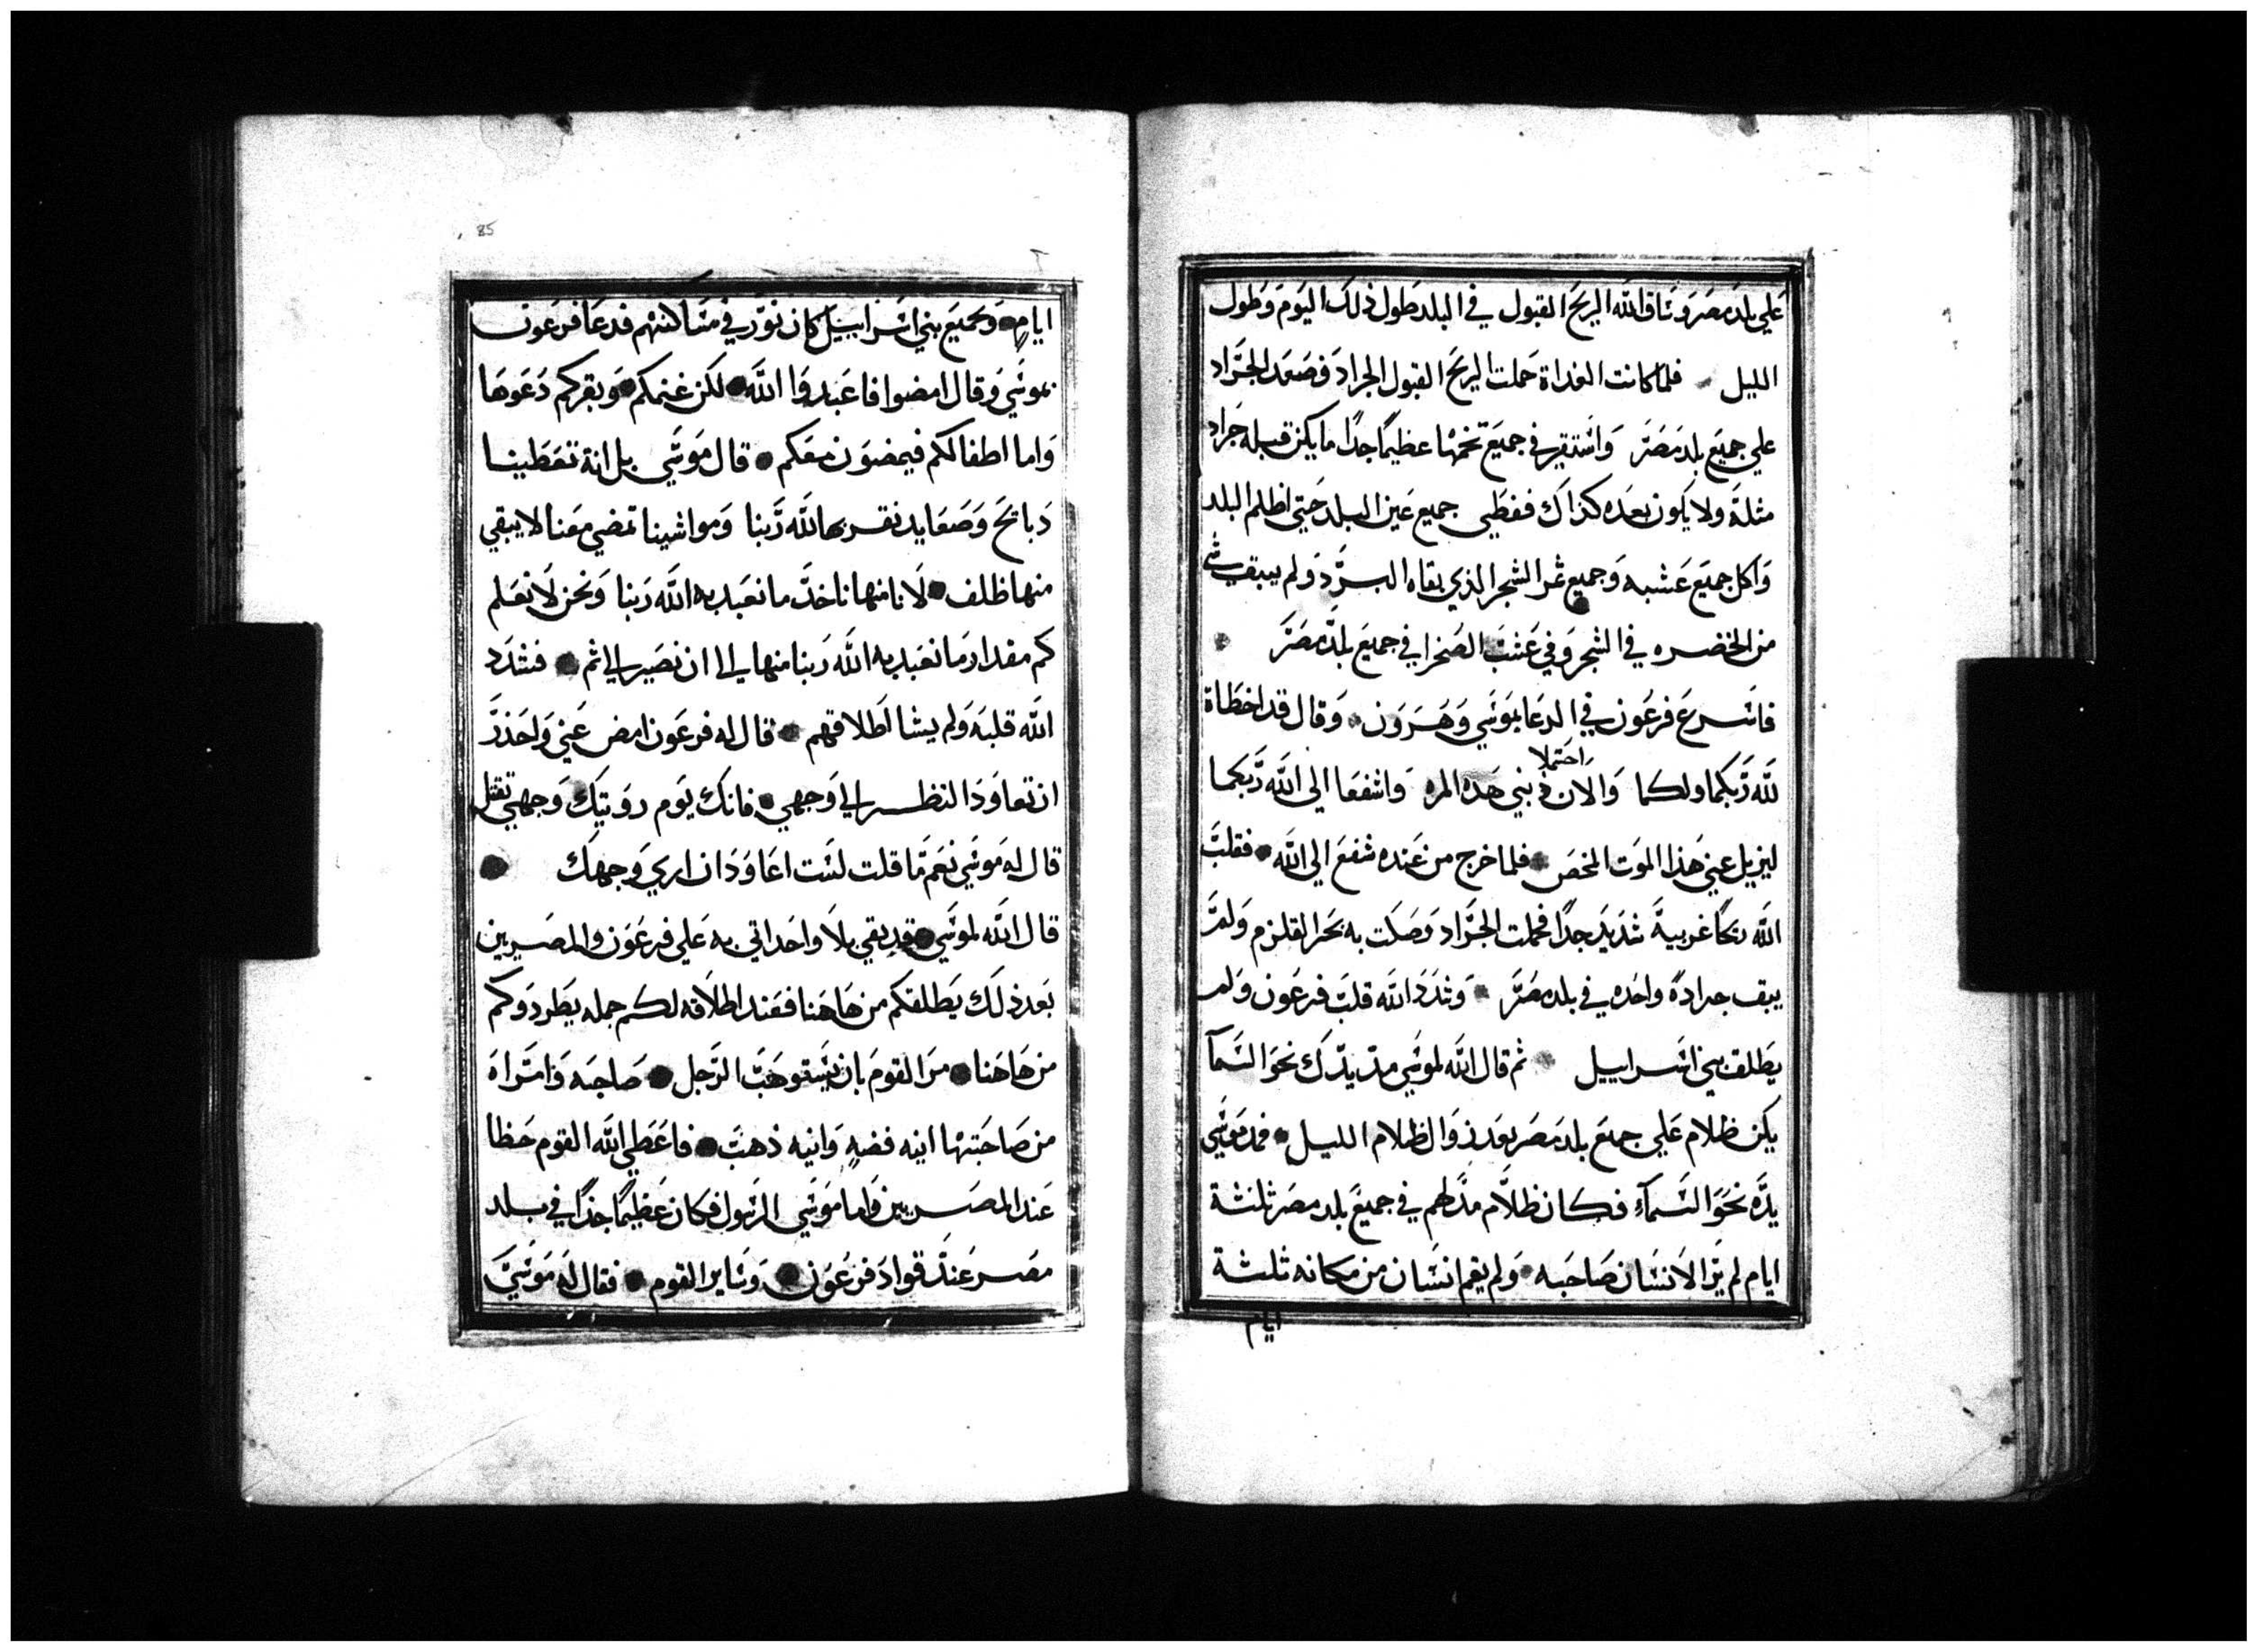 علي بلد مصر وساق الله الريح القبول في البلد طول ذلك اليوم وطول
الليل فلما كانت الغداة حملت الريح القبول الجراد فصعد الجراد
علي جميع بلد مصر واستقر في جميع تخمها عظيما جدا ما يكن قبله جراد
مثله ولا يكون بعده كذاك فغطي جميع عين البلد حتي اظلم البلد
واكل جميع عشبه وجميع ثمر الشجر الذي بقاه البرد ولم يبقي شي
من الخضره في الشجر وفي عشب الصحرا في جميع بلد مصر
فاسرع فرعون في الدعا بموسي وهرون وقال قد اخطاة
لله ربكما ولكما والان احتملا ذنبي هده المره واشفعا الي الله ربكما
ليزيل عني هذا الموت المحض فلما خرج من عنده شفع الي الله فقلب
الله ريحا غربية شديد جدا فحملت الجراد وصكت به بحر القلزم ولم
يبق جرادة واحده في بلد مصر وشدد الله قلب فرعون ولم
يطلق بني اسراييل ثم قال الله لموسي مد يدك نحو السمآ
يكن ظلام علي جميع بلد مصر بعد زوال ظلام الليل فمد موسي
يده نحو السمآء فكان ظلام مدلهم في جميع بلد مصر ثلثة
ايام لم ير الانسان صاحبه ولم يقم انسان من مكانه ثلثة
ايام
85
ايام وجميع بني اسراييل كان نور في مساكنهم فدعا فرعون
بموسي وقال امضوا فاعبدوا الله لكن غنمكم وبقركم دعوها
واما اطفالكم فيمضون معكم قال موسي بل انة تعطينا
دبايح وصعايد نقربها لله ربنا ومواشينا تمضي معنا لا يبقي
منها ظلف لانا منها ناخد ما نعبد به الله ربنا ونحن لا نعلم
كم مقدار ما نعبد به الله ربنا منها الي ان نصير الي ثم فشدد
الله قلبه ولم يشا اطلاقهم قال له فرعون امض عني واحذر
ان تعاود النظر الي وجهي فانك يوم رويتك وجهي تقتل
قال له موسي نعم ما قلت لست اعاود ان اري وجهك
قال الله لموسي قد بقي بلا واحد اتي به علي فرعون والمصريين
بعد ذلك يطلقكم من هاهنا فعند اطلاقه لكم جمله يطردوكم
من هاهنا من القوم بان يستوهب الرجل صاحبه وامراه
من صاحبتها انيه فضه وانيه ذهب فاعطي الله القوم حظا
عند المصريين واما موسي الرسول فكان عظيما جدا في بلد
مصر عند قواد فرعون وساير القوم فقال له موسي